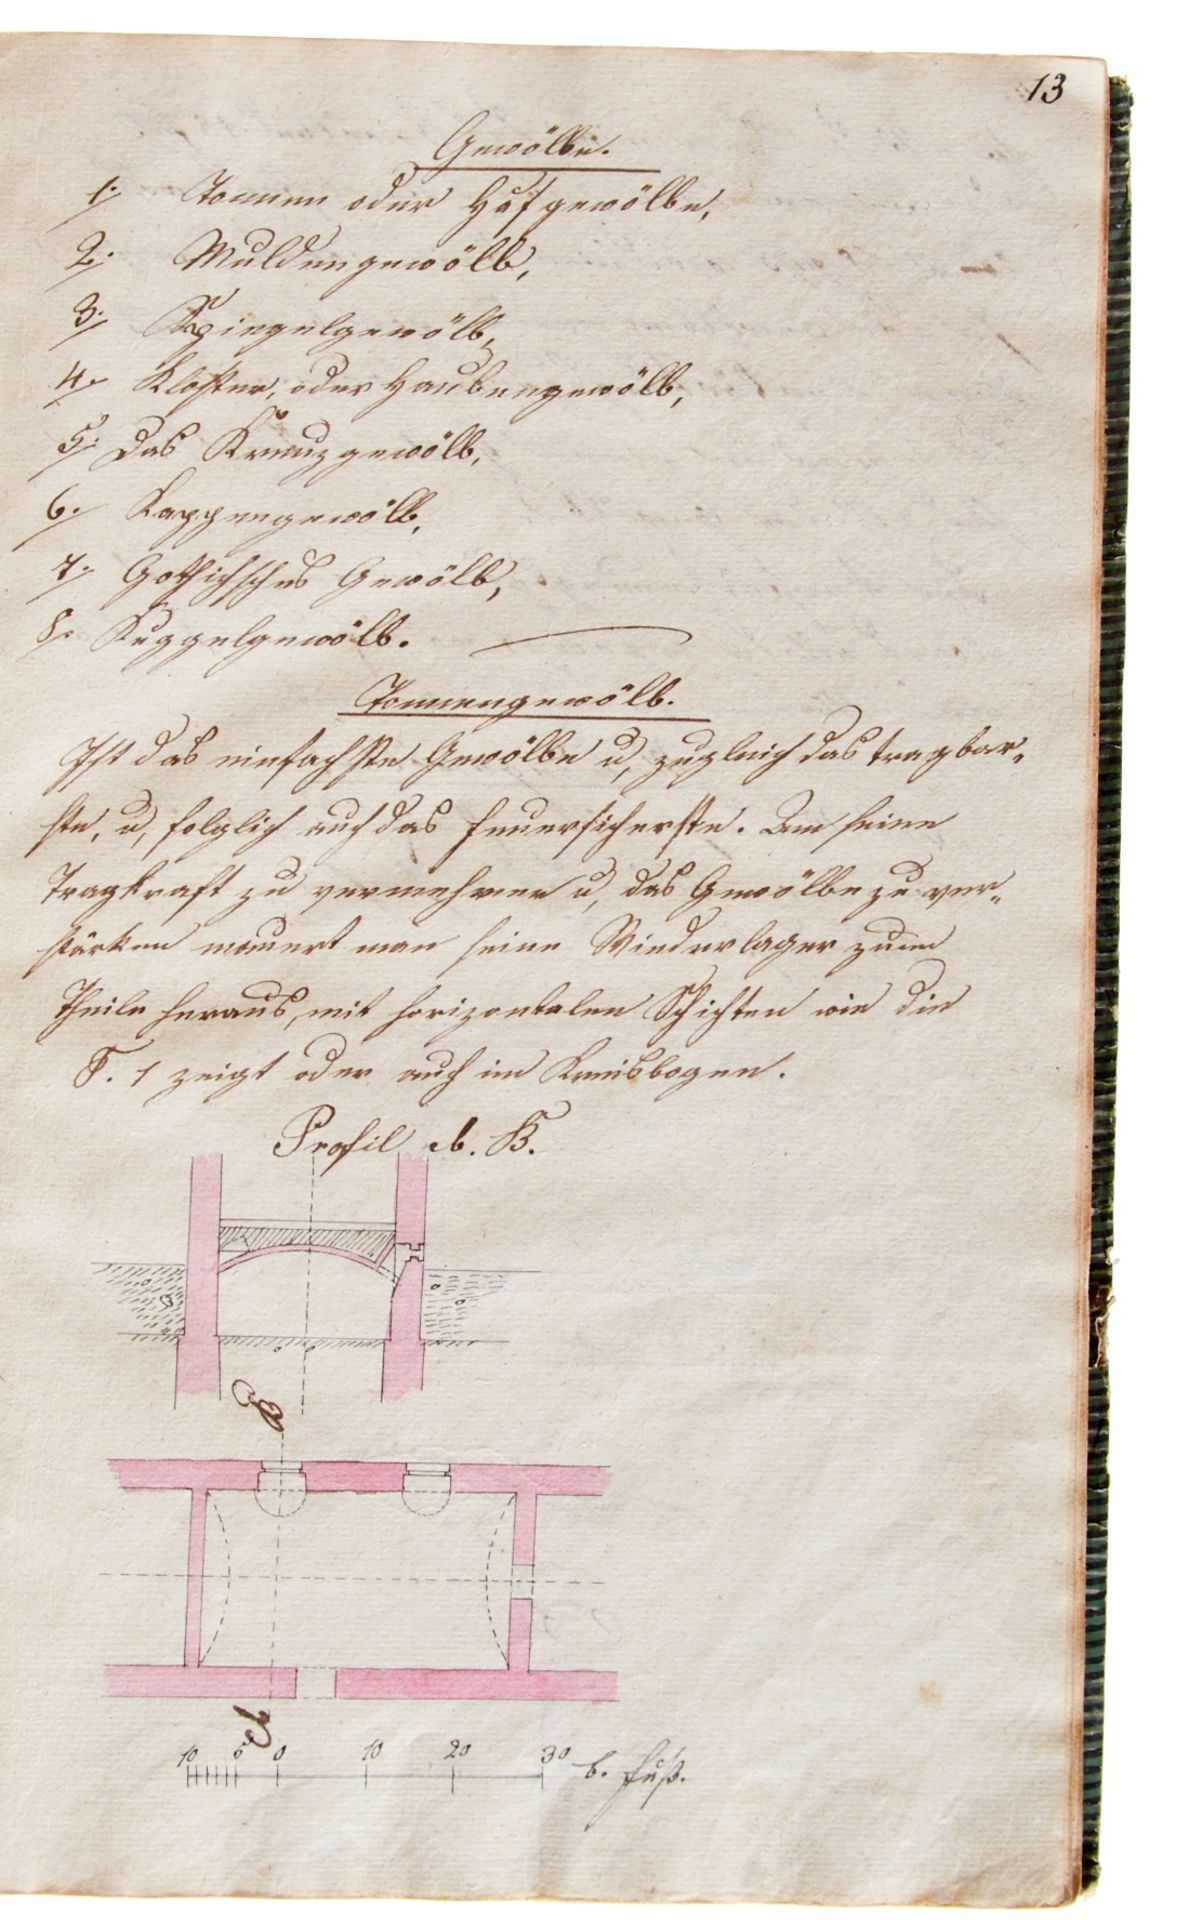 13
Gewölbe.
1. Tonnen oder Hufgewölbe,
2. Muldengewölb,
3. Spiegelgewölb,
4. Kloster, oder Haubengewölb,
5. Das Kreuzgewölb,
6. Kappengewölb,
7. Gothichsches Gewölb,
8. Kuppelgewölb.
Tonnengewölb.
Ist das einfachste Gewölbe u, zugleich das tragbar„
ste, u, folglich auch das feuersicherste. Um seine
Tragkraft zu vermehren u, das Gewölbe zu ver„
stärken mauert man seine Wiederlager zum
Theile heraus, mit horizontalen Schichten wie die
F. 1 zeigt oder auch im Kreisbogen.
Profil A. B.
B
A
10 5 0 10 20 30 b. Fuß.